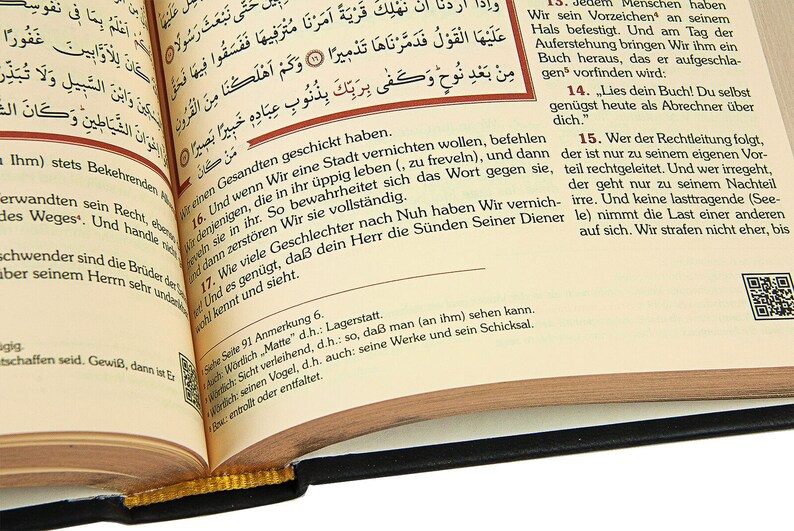 أعلم بما في نفوسكم
للأوابين غفورًا
المسكين وابن السبيل ولا تبذر
إخوان الشياطين وكان الشـ
u Ihm) stets Bekehrenden All
erwandten sein Recht, ebenso
des Weges⁴. Und handle nicht
schwender sind die Brüder der Sa
über seinem Herrn sehr undankb
ügig.
tschaffen seid. Gewiß, dann ist Er
حتى نبعث رسولًا
وإذا أردنا أن نهلك قرية أمرنا مترفيها ففسقوا فيها فحق
عليها القول فدمرناها تدميرًا ﴿١٦﴾ وكم أهلكنا من القرون
من بعد نوح وكفى بربك بذنوب عباده خبيرًا بصيرًا ﴿١٧﴾
من كان
Wir einen Gesandten geschickt haben.
16. Und wenn Wir eine Stadt vernichten wollen, befehlen
Wir denjenigen, die in ihr üppig leben (, zu freveln), und dann
freveln sie in ihr. So bewahrheitet sich das Wort gegen sie,
und dann zerstören Wir sie vollständig.
17. Wie viele Geschlechter nach Nuh haben Wir vernich-
tet! Und es genügt, daß dein Herr die Sünden Seiner Diener
wohl kennt und sieht.
Siehe Seite 91 Anmerkung 6.
Auch: Wörtlich „Matte" d.h.: Lagerstatt.
Wörtlich: Sicht verleihend, d.h.: so, daß man (an ihm) sehen kann.
⁴ Wörtlich: seinen Vogel, d.h. auch: seine Werke und sein Schicksal.
⁵ Bzw.: entrollt oder entfaltet.
13. Jedem Menschen haben
Wir sein Vorzeichen⁴ an seinem
Hals befestigt. Und am Tag der
Auferstehung bringen Wir ihm ein
Buch heraus, das er aufgeschla-
gen⁵ vorfinden wird:
14. „Lies dein Buch! Du selbst
genügst heute als Abrechner über
dich."
15. Wer der Rechtleitung folgt,
der ist nur zu seinem eigenen Vor-
teil rechtgeleitet. Und wer irregeht,
der geht nur zu seinem Nachteil
irre. Und keine lasttragende (See-
le) nimmt die Last einer anderen
auf sich. Wir strafen nicht eher, bis